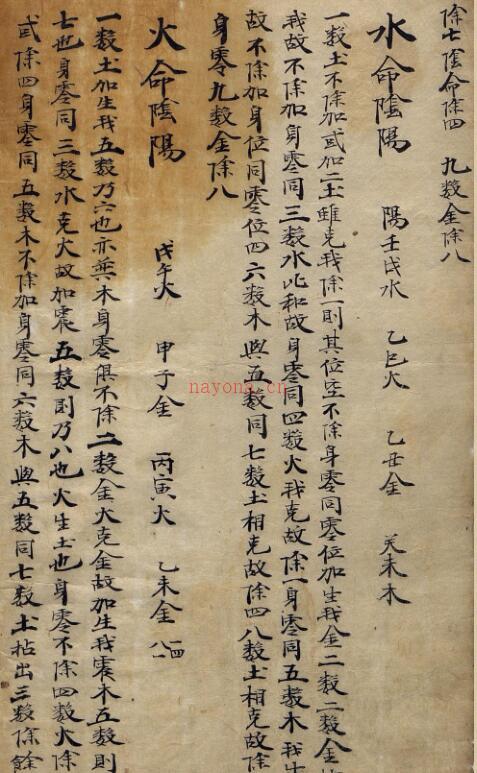 除七陰命除四　九数金除八
水命陰陽　陽壬戌水　乙巳火　乙丑金　癸未木
一数土不除加弍加二土雖克我除一則其位空不除身零同零位加生我金二数二数金
我故不除加身零同三数水比和故身零同四数火我克故除一身零同五数木我生
故不除加身位同零位四六数木與五数同七数土相克故除四八数土相克故除
身零九数金除八
火命陰陽　戊午火　甲子金　丙寅火　乙未金
一数土加生我五数乃六也亦無木身零俱不除二数金火克金故加生我震木五数則
七也身零同三数水克火故加震五数則乃八也火生土也身零不除四数火除
弍除四身零同五数木不除加身零同六数木與五数同七数土拈出三数除餘
nayona.cn